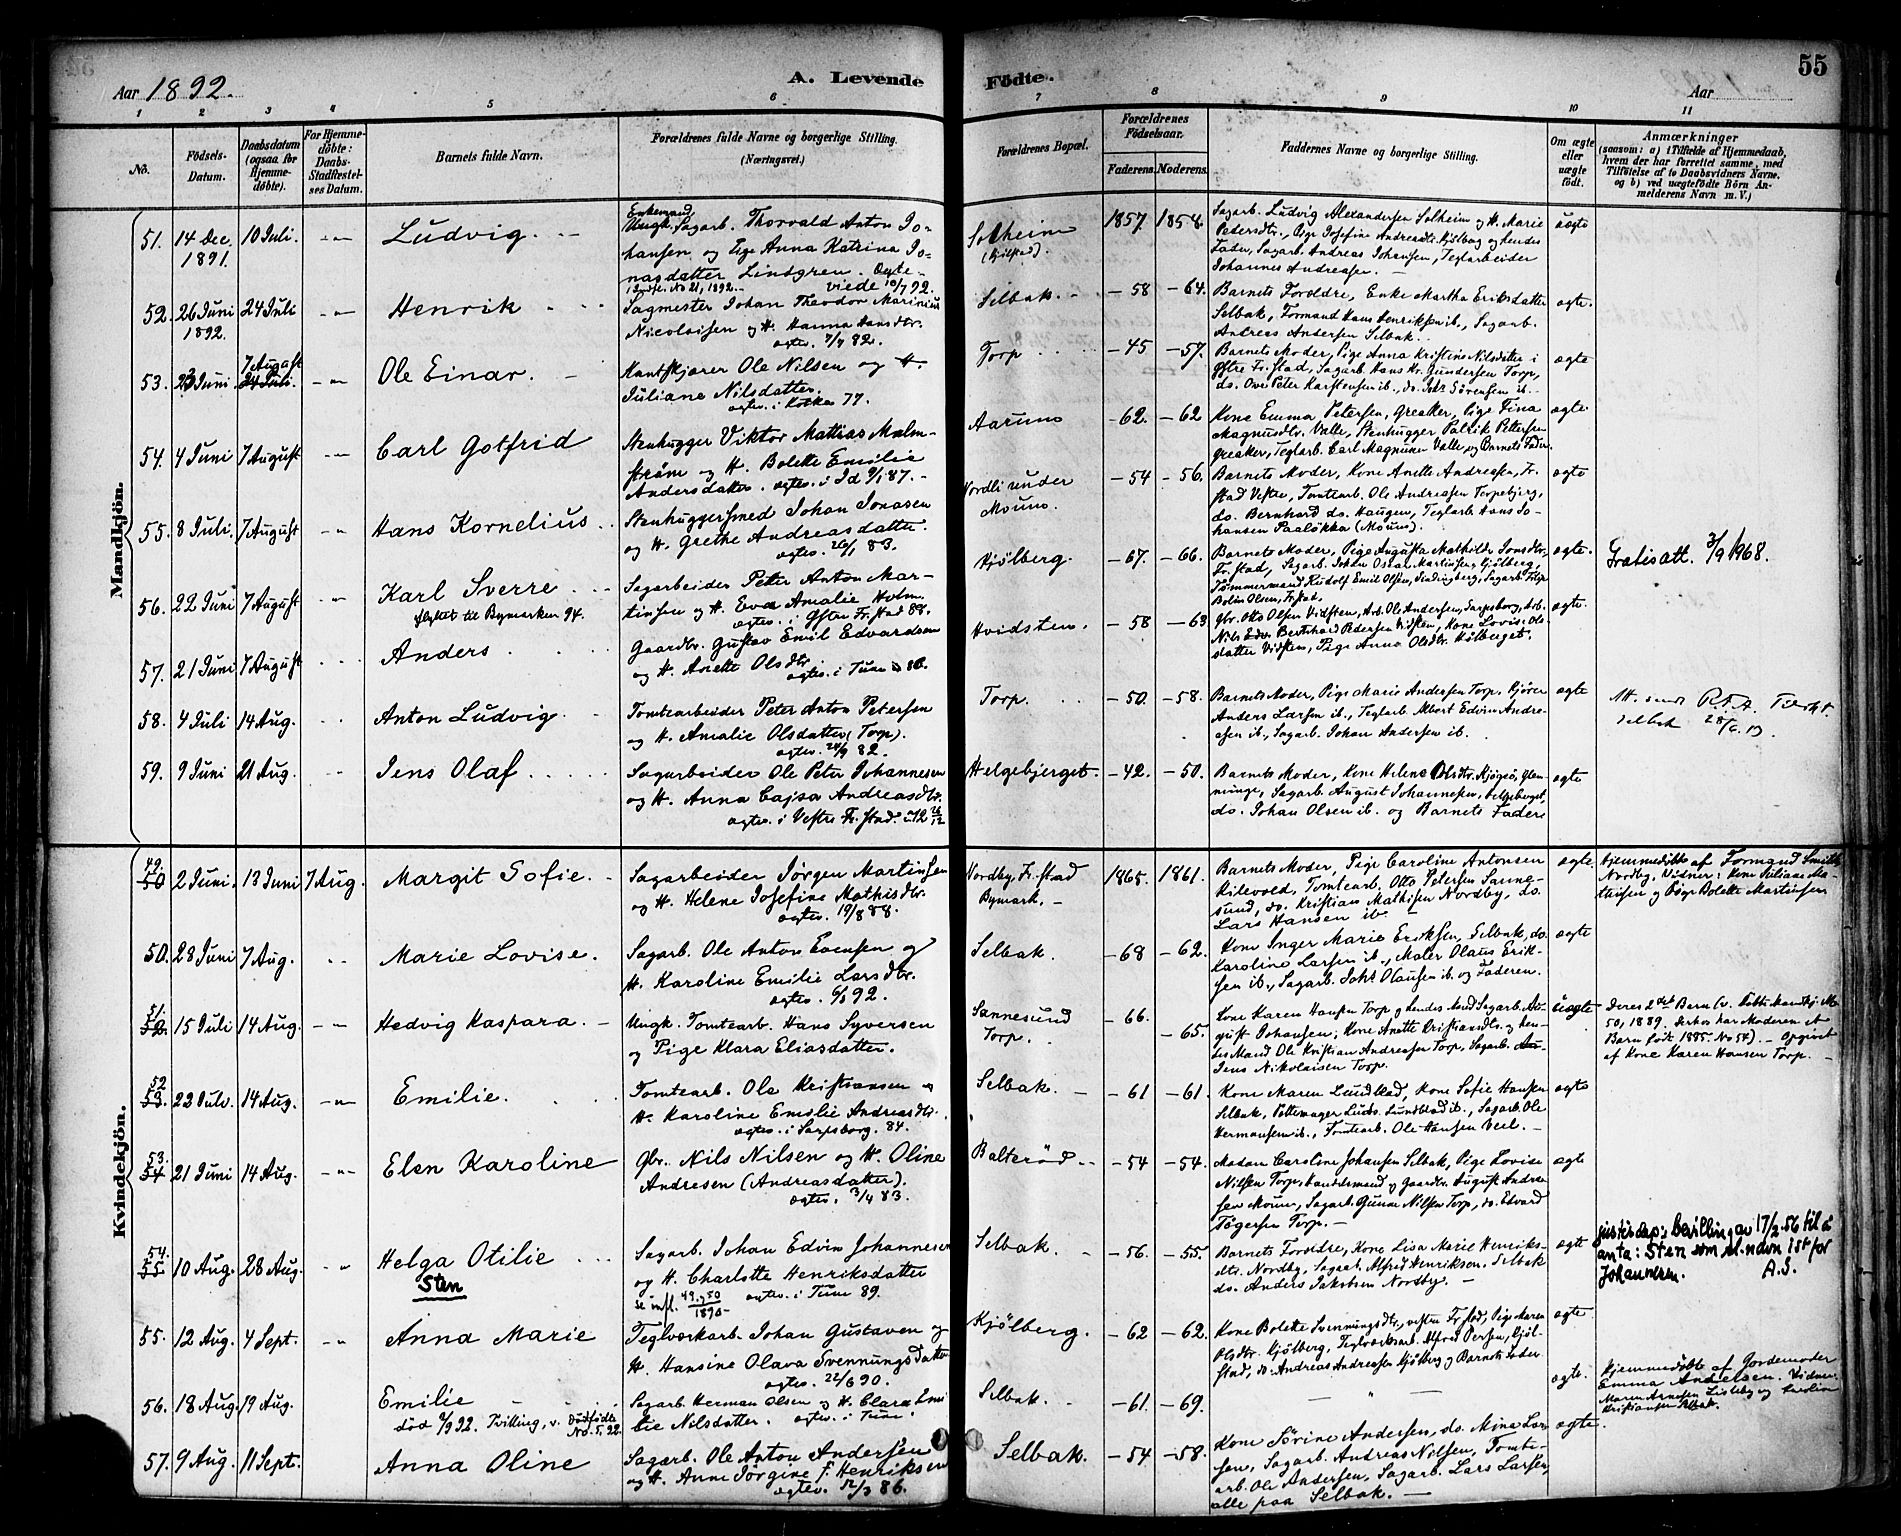 55
Aar 1892.
A. Levende Födte.
Aar
1 2 3 4 5 6 7 8 9 10 11
No.
Födsels-Datum.
Daabsdatum (ogsaa for Hjemme-døbte).
For Hjemme-døbte: Daabs-Stadfæstel-ses Datum.
Barnets fulde Navn.
Forældrenes fulde Navne og borgerlige Stilling. (Næringsvei.)
Forældrenes Bopæl.
Forældrenes Födselsaar.
Faderens. Moderens.
Faddernes Navne og borgerlige Stilling.
Om ægte eller uægte födt.
Anmærkninger
(saasom: a) i Tilfælde af Hjemmedaab, hvem der har forrettet samme, med Tilføielse af to Daabsvidners Navne, og b) ved uægtefödte Börn An-melderens Navn m. V.)
Mandkjön.
51. 14 Dec. 1891. 10 Juli. Ludvig.
Enkemand Sagarb. Thorvald Anton Jo-
hansen og Pige Anna Katrina Jo-
nasdatter Lindgren. Ægte-
viede 10/7 92.
Solheim (Kjölstad). 1857. 1854.
Sagarb. Ludvig Alexandersen Solheim og H. Marie
Pedersdtr., Pige Josefine Andreasdtr. Kjölberg og hendes
Fader, Sagarb. Andreas Johansen, Teglarbeider
Johannes Andreasen.
uægte
52. 26 Juni 1892. 24 Juli Henrik
Sagmester Johan Theodor Marinius
Nicolaisen og H. Hanna Hansdtr.
Selbak. - 58 - 64.
Barnets Forældre, Enke Martha Eriksdatter
Selbak, Formand Hans Henriksen ib., Sagarb.
Andreas Andersen Selbak.
ægte.
53. 23 Juni 7 August 24 Juli. Ole Einar.
Kantskjærer Ole Nilsen og H.
Juliane Nilsdatter.
ægtev. i Kotka 77.
Torp - 45 - 57.
Barnets Moder, Pige Anna Kristine Nilsdatter i
Østre Fr.stad, Sagarb. Hans Kr. Gundersen Torp,
do. Ove Peter Karstensen ib., do. Johs Sörensen ib.
ægte
54. 4 Juni 7 August Carl Gotfrid
Stenhugger Viktor Mattias Malm-
ström og H. Bolette Emilie
Andersdatter. ægtev. i Id 9/1 87.
Aarum - 62. - 62
Kone Emma Petersen, Greaker, Pige Fina
Magnusdtr. Valle, Stenhugger Patrik Pettersen
Greaker, Teglarb. Carl Magnusen Valle og Barnets Fader.
ægte
55. 8 Juli. 7 August Hans Kornelius.
Stenhuggersmed Johan Jonasen
og H. Grethe Andreasdatter.
ægtev. 26/1 83.
Nordli under Moum. - 54 - 56.
Barnets Moder, Kone Anette Andreasen, Fr.
stad Vestre, Tomtearb. Ole Andreasen Torpebjerg,
do. Bernhard do. Haugen, Teglarb. Hans Jo-
hansen Paalökka (Moum).
ægte
56. 22 Juni 7 August Karl Sverre.
flyttet til Bymarken 94.
Sagarbeider Peter Anton Mar-
tinsen og H. Eva Amalie Holm-
ægtev. i Østre Fr.stad 88.
Kjölberg. - 67. - 66.
Barnets Moder, Pige Augusta Mathilde Jonsdtr.,
Fr.stad, Sagarb. Johan Oskar Martinsen Kjölberg,
Tömmermand Rudolf Emil Olsen,
Bolin Olsen, Fr.stad.
ægte.
Gratis att. 3/9 1968.
57. 21 Juni 7 August Anders
Gaardbr. Gustav Emil Edvardsen
og H. Anette Olsdtr.
ægtev. i Tune 86.
Hvidsten. - 58 - 63
Gbr. Otto Olsen Vidsten, Arb. Ole Andersen, Sarpsborg, Arb.
Nils Edv. Bernhard Pedersen Vidsten, Kone Lovise Ols-
datter Vidsten, Pige Anna Olsdtr. Hölberget.
ægte.
58. 4 Juli 14 Aug. Anton Ludvig
Tomtearbeider Peter Anton Petersen
og H. Amalie Olsdatter (Torp).
ægtev. 24/9 82.
Torp. - 50. - 58.
Barnets Moder, Pige Marie Andersen Torp, Kjörer
Anders Larsen ib., Teglarb. Albert Edvin Andre-
asen ib., Sagarb. Johan Andersen ib.
ægte
Att. sendt R.T.A.
Selbak 28/6 19.
59. 9 Juni 21 Aug. Jens Olaf
Sagarbeider Ole Peter Johannesen
og H. Anna Cajsa Andreasdtr.
ægtev. i Vestre Fr.stad
Helgebjerget. - 42. - 50.
Barnets Moder, Kone Helene Olsdtr. Glem-
minge, Sagarb. August Johannesen, Helgeberget,
do. Johan Olsen ib. og Barnets Fader
ægte
Kvindekjön.
49. 50 2 Juni. 13 Juni 7 Aug. Margit Sofie.
Sagarbeider Jörgen Martinsen
og H. Helene Josefine Mathisdtr.
ægtev. 19/8 88.
Nordby, Fr.stad Bymark. 1865. 1861.
Barnets Moder, Pige Caroline Antonsen
Kilevold, Tomtearb. Otto Petersen Sanne-
sund, do. Kristian Mathisen Nordby, do.
Lars Hansen ib.
ægte.
Hjemmedöbt af Formand Smith,
Nordby, Vidner: Kone Juliane Ma-
thisen og Pige Bolette Martinsen
50. 28 Juni 7 Aug. Marie Lovise.
Sagarb. Ole Anton Evensen og
H. Karoline Emilie Larsdtr.
Selbak. - 68 - 62.
Kone Inger Marie Eriksen, Selbak, do.
Karoline Larsen ib., Maler Olaus Erik-
sen ib., Sagarb. Johs Olausen ib. og Faderen.
ægte
51. 52 15 Juli 14 Aug. Hedvig Kaspara.
Ungk. Tomtearb. Hans Syversen
og Pige Klara Eliasdatter.
Sannesund Torp. - 66. - 65.
Kone Karen Hansen Torp og hendes Mand Sagarb. Au-
gust Johansen; Kone Anette Kristiansdtr. og hen-
des Mand Ole Kristian Andreasen Torp, Sagarb.
Jens Nikolaisen Torp.
uægte
Deres 2det Barn (v. Födte Mandkj. No
50, 1889. Deshos har Moderen et
Barn födt 1885. No 54). - Opgivet
af Kone Karen Hansen Torp.
52 53. 22 Juli. 14 Aug. Emilie.
Tomtearb. Ole Kristiansen og
H. Karoline Emilie Andreasdtr.
ægtev. i Sarpsborg. 84.
Selbak. - 61 - 61.
Kone Maren Lundblad, Kone Sofie Hansen
Selbak, Pottemager Ludv. Lundblad ib., Sagarb. Ole
Hermansen ib., Tomtearb. Ole Hansen Veel.
ægte
53. 54 21 Juni 14 Aug. Elen Karoline
Gbr. Nils Nilsen og H. Oline
Andresen (Andreasdatter).
ægtev. 3/4 83.
Balteröd - 54 - 54.
Madam Caroline Johansen Selbak, Pige Lovise
Nilsen Torp, Handelsmand og Gaardbr. August Andrea-
sen Moum, Sagarb. Gunne Nilsen Torp, do. Edvard
Tögersen Torp.
ægte
54. 55 10 Aug. 28 Aug. Helga Otilie
Sten
Sagarb. Johan Edvin Johannesen
og H. Charlotte Henriksdatter
ægtev. i Tune 89.
Selbak. - 56. - 55.
Barnets Forældre, Kone Lisa Marie Henriks-
dtr. Nordby, Sagarb. Alfred Henriksen, Selbak
do. Anders Jakobsen Nordby.
ægte
justisdep: bevilling av 17/2 56 til å
anta: Sten som sl.navn ist.for
Johansen. A.S.
55. 12 Aug. 4 Sept. Anna Marie
Teglverkarb. Johan Gustavsen og
H. Hansine Olava Svennungsdatter
ægtev. 22/6 90.
Kjölberg. - 62 - 62.
Kone Bolette Svenningsdtr., vestre Fr.stad, Pige Maren
Olsdtr. Kjölberg, Teglværksarb. Alfred Persen, Kjöl-
stad, do. Andreas Andreasen Kjölberg og Barnets Fader
ægte
56. 18 Aug. 19 Aug. Emilie
död 6/9 92. Tvilling, v. Dödfödte No. 5, 92.
Sagarb. Herman Olsen og H. Clara Emi-
lie Nilsdatter. ægtev. i Tune.
Selbak. - 61. - 69.
ægte.
Hjemmedöbt af Jordemoder
Emma Andresen. Vidner:
57. 9 Aug. 11 Sept. Anna Oline
Sagarb. Ole Anton Andersen
og H. Anne Jörgine f. Henriksen
Selbak. - 54 - 58.
Kone Sörine Andersen, do. Mina Lar-
sen, Sagarb. Andreas Nilsen, Tomte-
arb. Ole Andersen, Sagarb. Lars Larsen,
alle paa Selbak.
ægte.